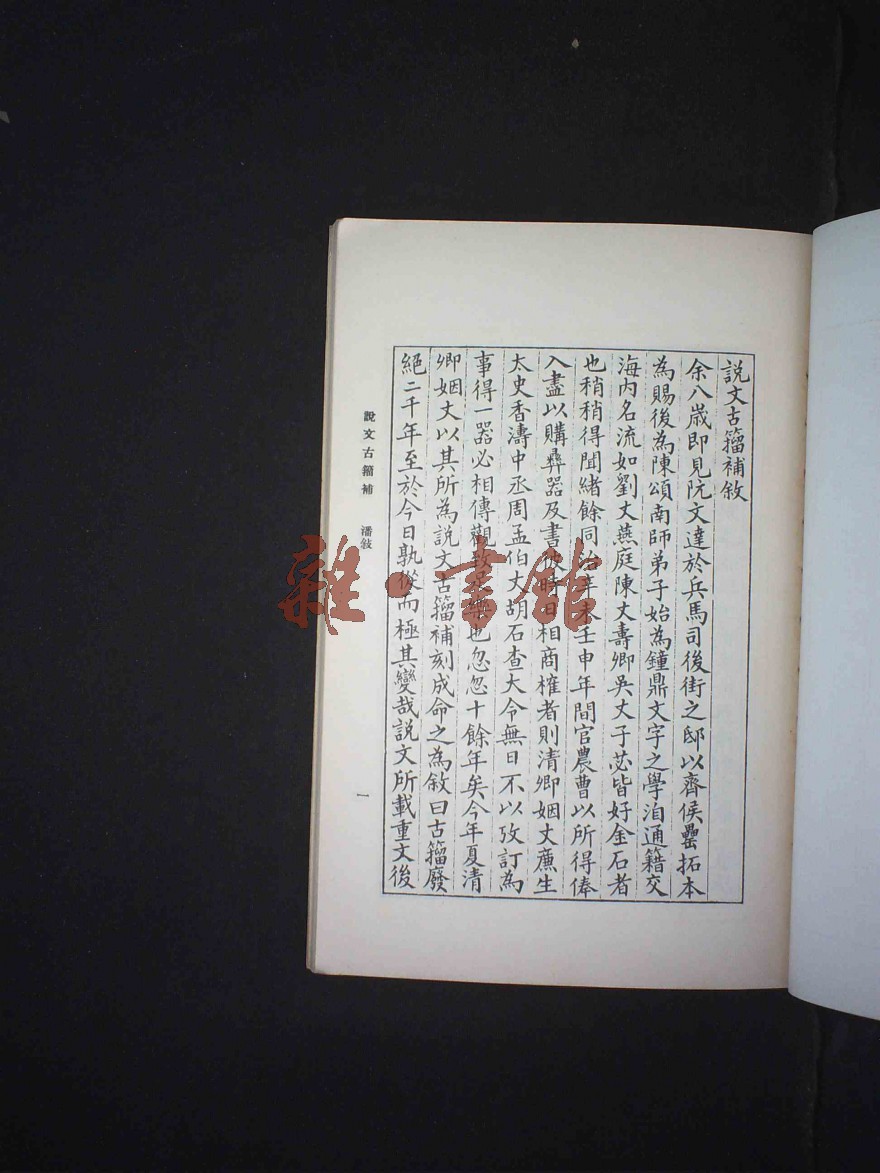 説文古籀補敘
余八歳即見阮文達於兵馬司後街之邸以齊侯罍拓本
為賜後為陳頌南師弟子始為鐘鼎文字之學洎通籍交
海内名流如劉丈燕庭陳丈壽卿吳丈子苾皆好金石者
也稍稍得聞緒餘同治辛未壬申年間官農曹以所得俸
入盡以購彝器及書彼時日相商榷者則清卿姻丈廉生
太史香濤中丞周孟伯丈胡石查大令無日不以攷訂為
事得一器必相傳觀致足樂也忽忽十餘年矣今年夏清
卿姻丈以其所為説文古籀補刻成命之為敘曰古籀廢
絕二千年至於今日孰復而極其變哉説文所載重文後
説文古籀補 潘敍
一
雜·書館